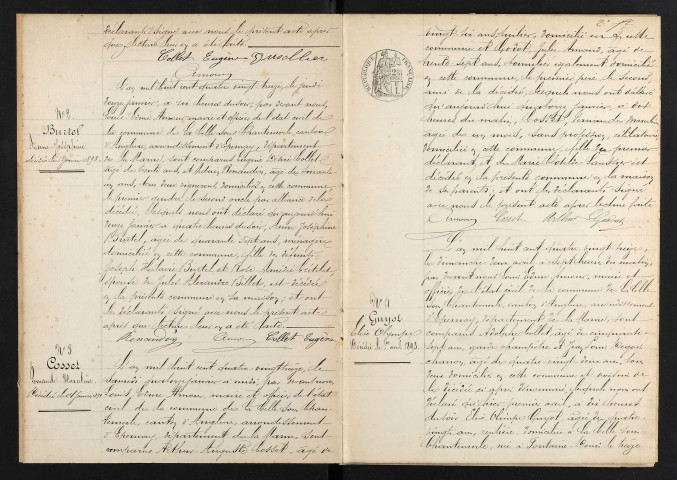 déclarants signé avec nous le présent acte après
que lecture leur en a été faite.
Collet Eugène
Amour
N° 2
Burtel
Marie Joséphine
L'an mil huit cent quatre vingt treize, le jeudi
douze janvier, à six heures du soir, par devant nous,
Louis Edmé Amour, maire et officier de l'état civil de
la commune de La Celle sous Chantemerle, canton
d'Anglure, arrondissement d'Epernay, département
de la Marne, sont comparus Eugène Désiré Collet
âgé de trente ans et
ans, tous deux domiciliés en cette commune,
le premier gendre, le second oncle par alliance de la
décédée, lesquels nous ont déclaré qu'aujourd'hui
douze janvier à quatre heures du soir, Joséphine
Burtel, âgée de quarante sept ans, ménagère
domiciliée en cette commune, fille de défunts
Joseph Burtel et Rose
épouse de Jules Collet, est décédée
en la présente commune en sa maison, et ont
les déclarants signé avec nous le présent acte
après que lecture leur en a été faite.
Amour Collet Eugène
N° 3
Cosset
L'an mil huit cent quatre vingt treize, le
samedi quatorze janvier à midi, par devant nous,
Louis Edmé Amour, maire et officier de l'état
civil de la commune de la Celle sous Chan-
temerle, canton d'Anglure, arrondissement
d'Epernay, département de la Marne, sont
comparus Arthur Auguste Cosset, âgé de
vingt six ans, domicilié en cette
commune et Godot Jules Amand, âgé de
trente sept ans, également domicilié
en cette commune, le premier père, le second
ami de la décédée, lesquels nous ont déclaré
qu'aujourd'hui quatorze janvier, à dix
heures du matin, Cosset
âgée de un mois, sans profession, célibataire
domiciliée en cette commune, fille du premier
déclarant, et de Marie
décédée en la présente commune en la maison
de ses parents, et ont les déclarants signé
avec nous le présent acte après lecture faite
Amour Cosset Arthur Godot
RÉPUBLIQUE FRANÇAISE
N° 4
Guyot
Elisa Olimpe
Décédée le 1er avril 1893.
L'an mil huit cent quatre vingt treize,
le dimanche deux avril à sept heures du matin,
par devant nous Louis Edmé Amour, maire et
officier de l'état civil de la commune de la Celle
sous Chantemerle, canton d'Anglure, arrondissement
d'Epernay, département de la Marne, sont
comparus Adolphe Collet, âgé de cinquante
sept ans, garde champêtre et
âgé de quatre vingt deux ans, tous
deux domiciliés en cette commune et voisins de
la décédée ci après dénommée lesquels nous ont
déclaré qu'hier premier avril, à dix heures
du soir Elisa Olimpe Guyot, âgée de quatre
vingts ans, rentière, domiciliée à la Celle sous
Chantemerle, née à Fontaine-Denis le treize